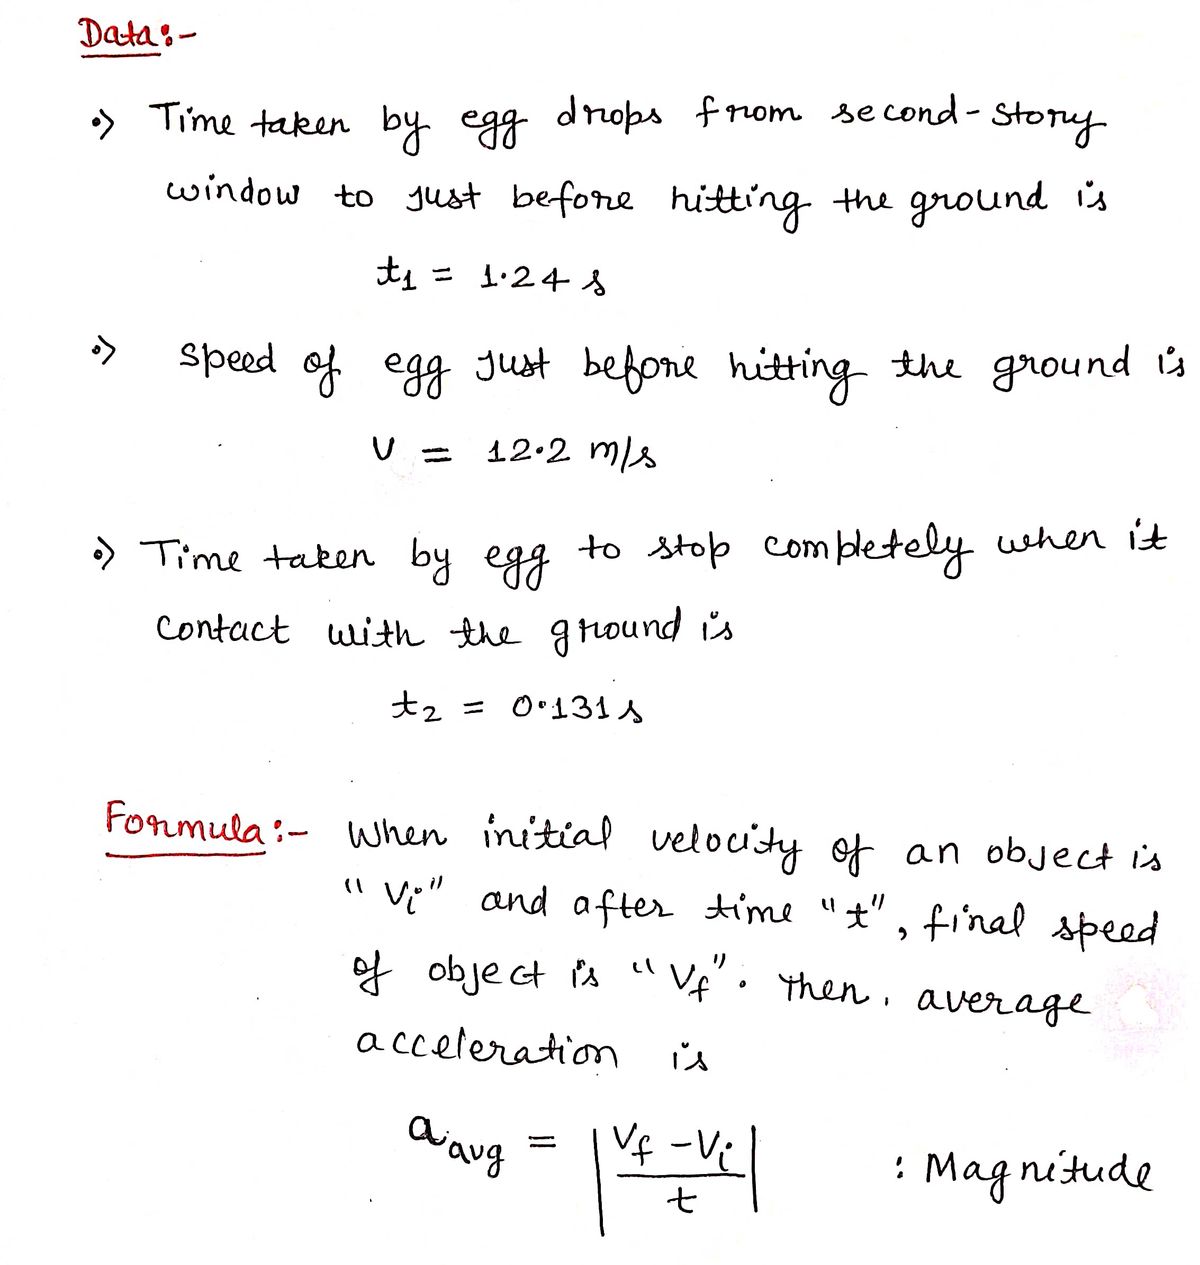 Data:-
•> Time taken by egg drops from second-story
window to just before hitting the ground is
t₁ = 1.24 s
•> speed of egg just before hitting the ground is
V = 12.2 m/s
•> Time taken by egg to stop completely when it
contact with the ground is
t₂ = 0.131 s
Formula:- When initial velocity of an object is
"Vᵢ" and after time "t", final speed
of object is "V_f". Then, average
acceleration is
a_avg = |(V_f - Vᵢ)/t| : Magnitude